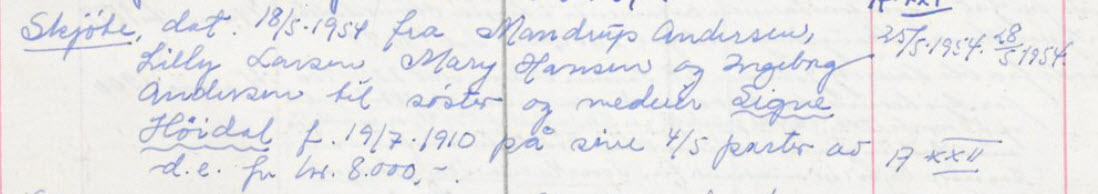 Skjöte, dat. 18/5-1954 fra Mandrup Andersen, 25/5-1954. 28/5 1954.
Lilly Larsen Mary Hansen og Ingeborg
Andersen til søster og medeier Signe
Höidal f. 19/7-1910 på sine 4/5 parter av 17 XXII
d.e. for kr. 8.000,-.